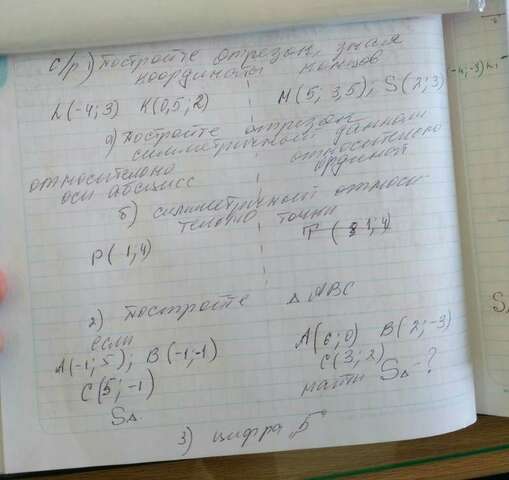 с/р) Постройте отрезок, зная
координаты концов
L(-4;3) K(0,5;2) M(5; 3,5); S(2;3)
-4;-3)
а) Постройте отрезок
симметричный данному
относительно относительно
оси абсцисс ординат
б) симметричный относи-
тельно точки
P(1;4) T(1;4)
2) Постройте △ ABC
если
A(-1;5); B(-1;-1) A(6;0) B(2;-3)
C(5;-1) C(3;2)
S△ найти S△-?
3) цифра „5"